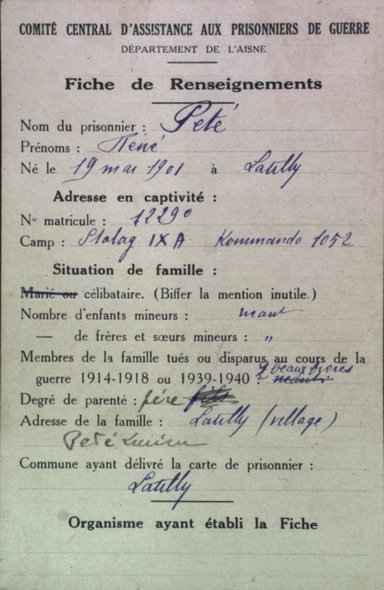 COMITÉ CENTRAL D'ASSISTANCE AUX PRISONNIERS DE GUERRE
DÉPARTEMENT DE L'AISNE
Fiche de Renseignements
Nom du prisonnier : Peté
Prénoms : René
Né le 19 mai 1901 à Latilly
Adresse en captivité :
N° matricule : 12290
Camp : Stalag IX A Kommando 1052
Situation de famille :
Marié ou célibataire. (Biffer la mention inutile.)
Nombre d'enfants mineurs : néant
— de frères et sœurs mineurs : "
Membres de la famille tués ou disparus au cours de la
guerre 1914-1918 ou 1939-1940 : 2 beaux frères néant
Degré de parenté : père
Adresse de la famille : Latilly (village)
Peté Lucien
Commune ayant délivré la carte de prisonnier :
Latilly
Organisme ayant établi la Fiche